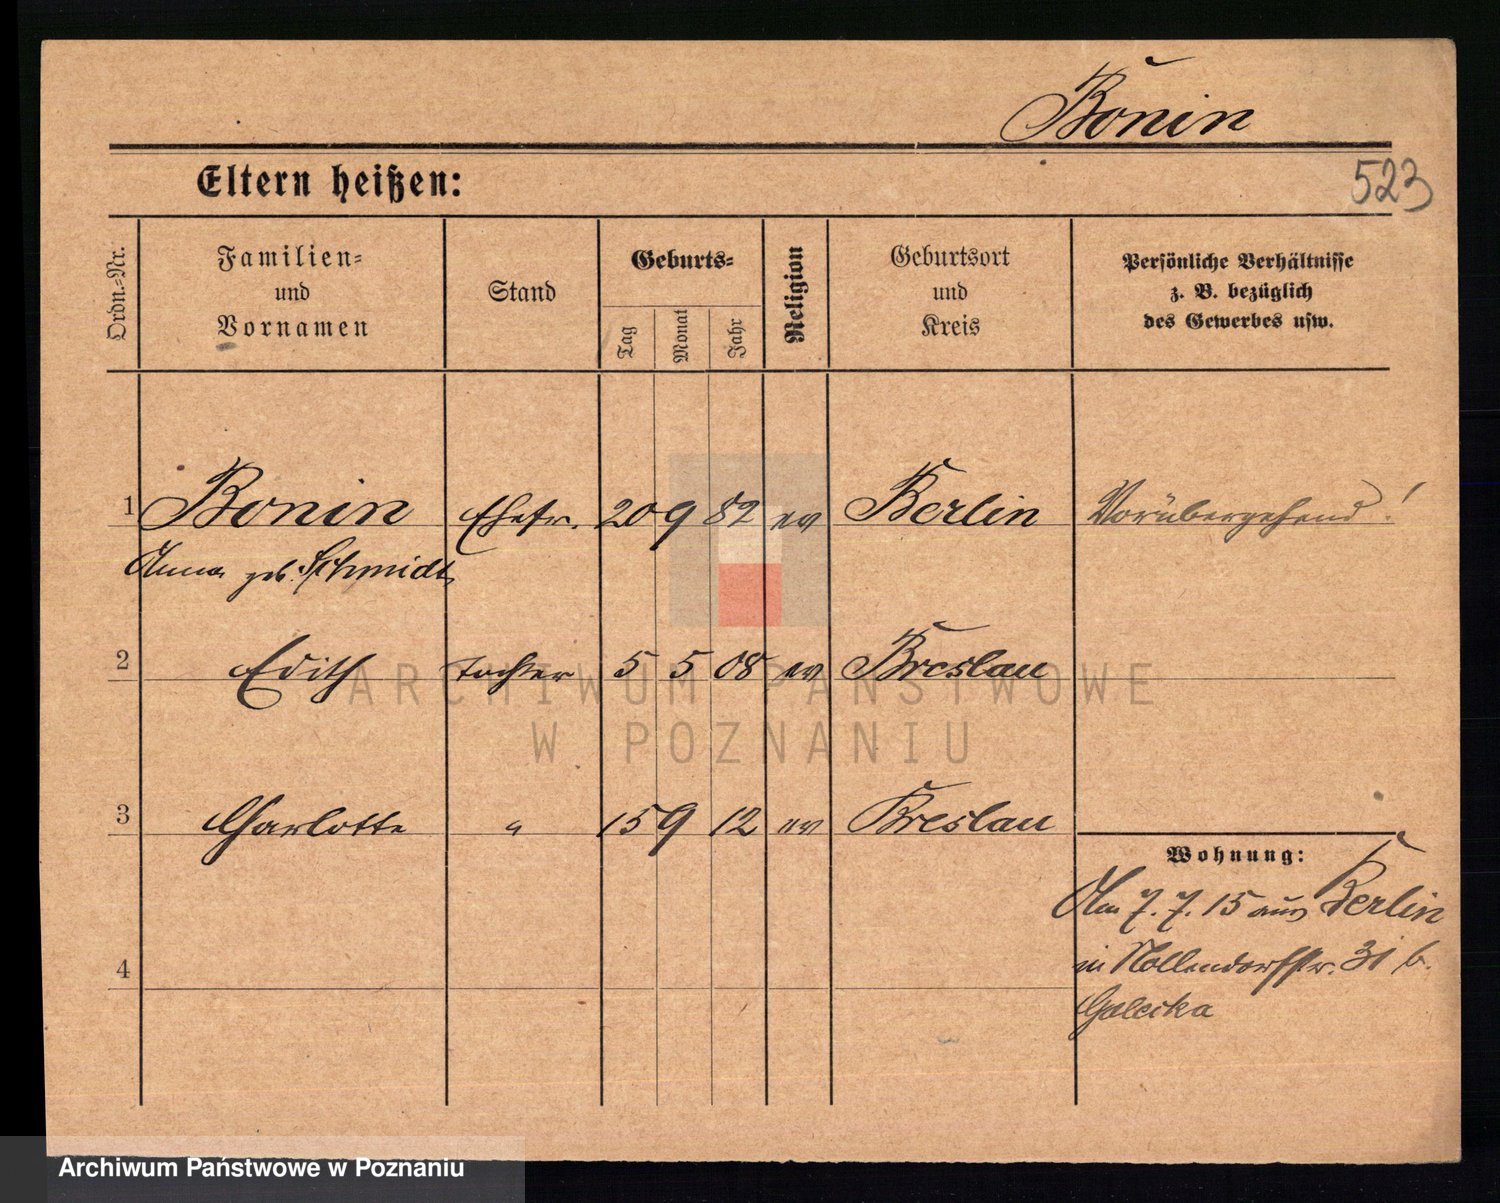 Bonin
523
Eltern heißen:
Ordn.-Nr.
Familien-
und
Vornamen
Stand
Geburts-
Tag
Monat
Jahr
Religion
Geburtsort
und
Kreis
Persönliche Verhältnisse
z. B. bezüglich
des Gewerbes usw.
1 Bonin Ehefr. 20 9 82 ev Berlin Vorübergehend!
Anna geb. Schmidt
2 Edith Tochter 5 5 08 ev Breslau
3 Charlotte " 15 9 12 ev Breslau
Wohnung:
Am 7. 7. 15 aus Berlin
in Nollendorfstr. 31 b.
4
ARCHIWUM PAŃSTWOWE
W POZNANIU
Archiwum Państwowe w Poznaniu